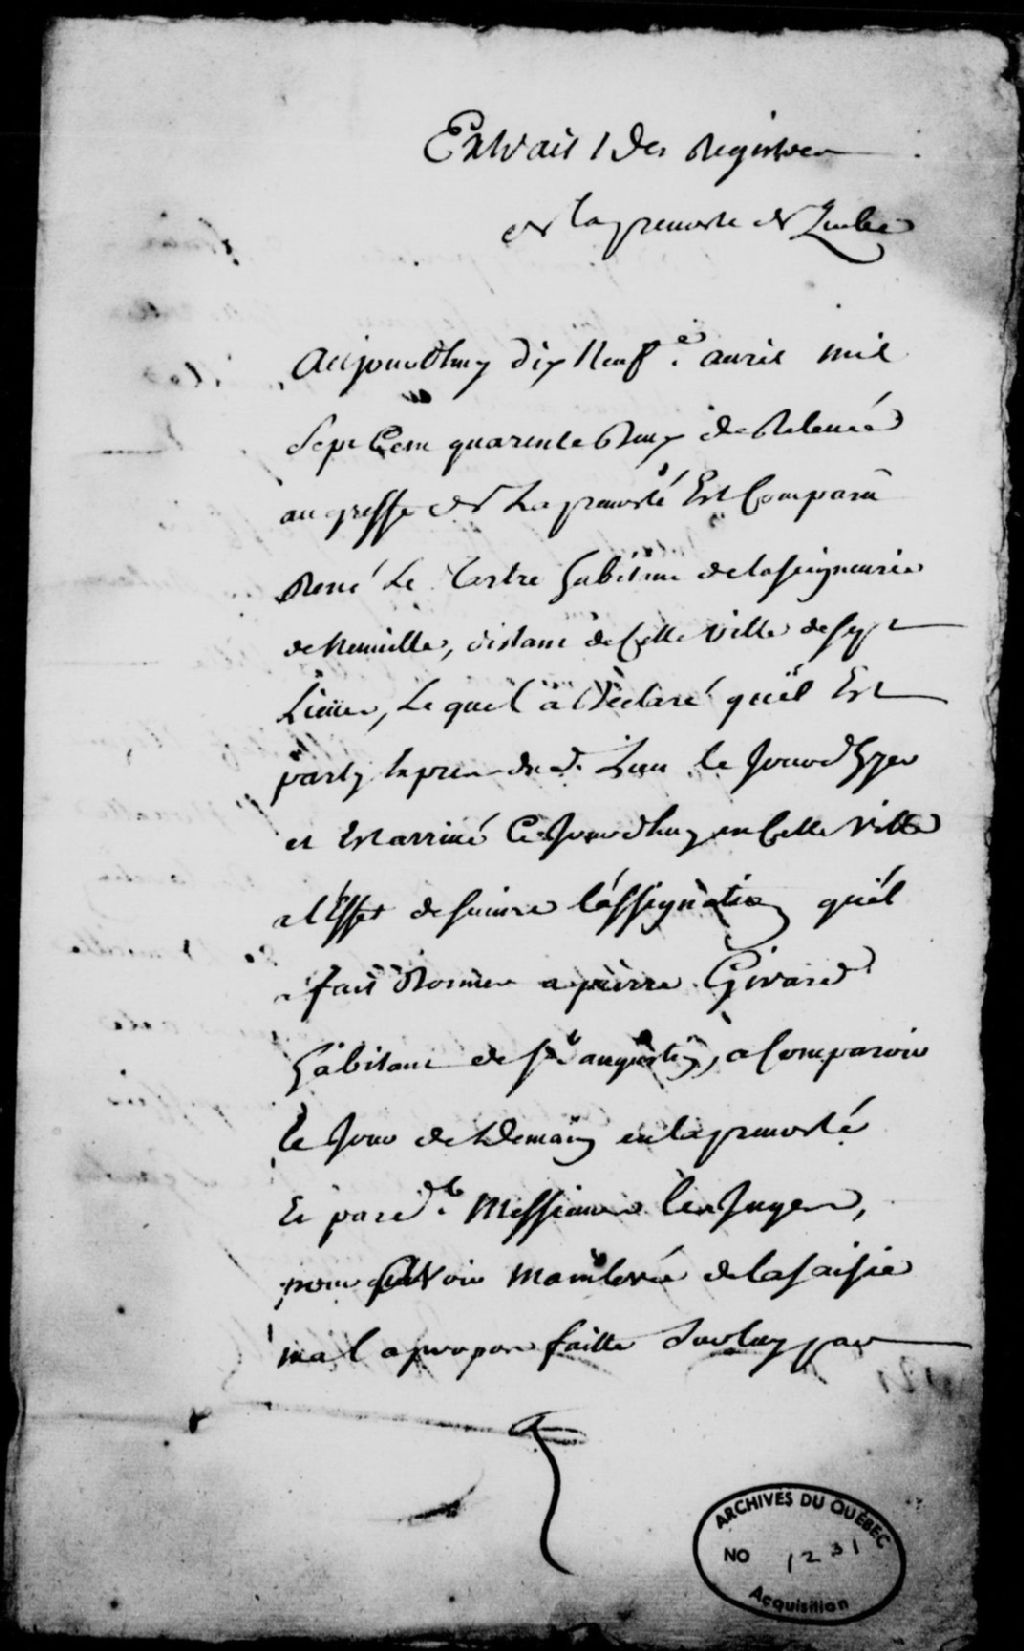 Extrait Des Registres
de la prevosté de Quebec
Aujourdhuy dix Neuf.e avril mil
Sept Cent quarente deux de Relevée
au greffe de La prevosté Est Comparû
René Le Tartre habitant de la seigneurie
de Neuville, distant de Cette Ville de sept
Lieues, Lequel a Declaré qu'il Est
party du d. Lieu le Jour d'hyer
et Est arrivé Ce Jourdhuy en Cette Ville
a l'Effet de suivre l'assignation qu'il
a fait donner a pierre Girard
habitant de St augustin, a Comparoir
le Jour de Demain en la prevosté
Et pard.t Messieurs les Juges,
pour voir Mainlevée de la saisie
mal a propos faitte sur luy par
ARCHIVES DU QUÉBEC
NO 1231
Acquisition